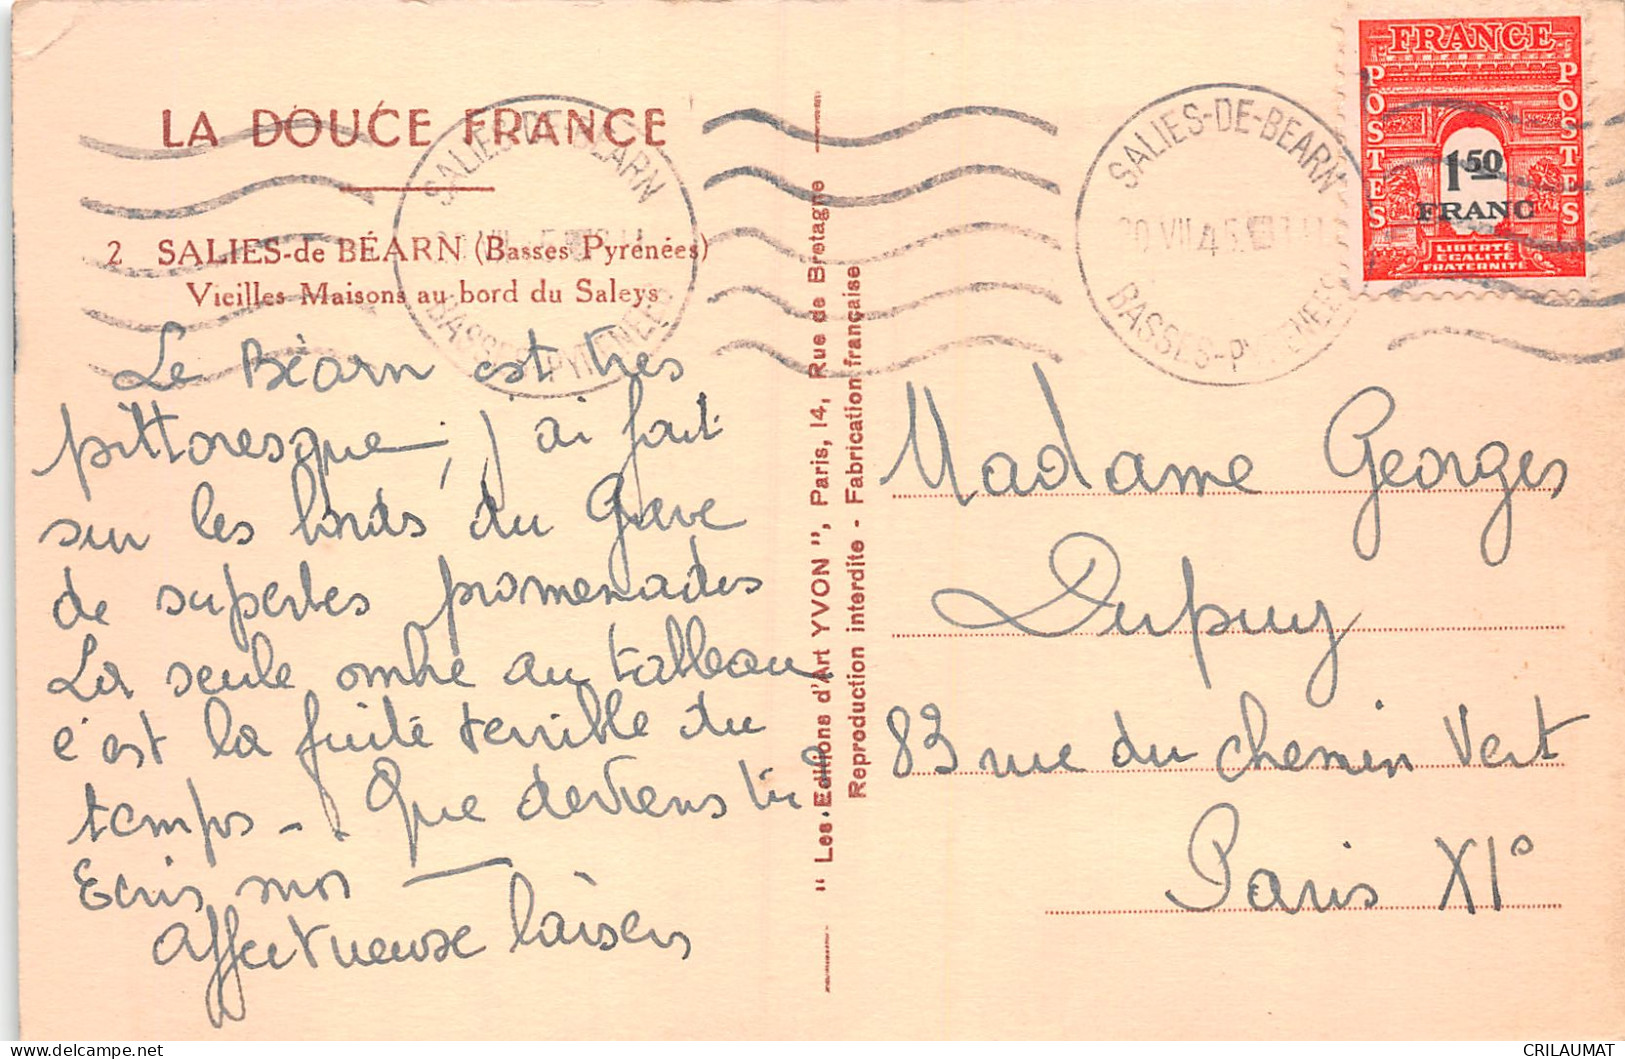 LA DOUCE FRANCE
2 SALIES-de BÉARN (Basses Pyrénées)
Vieilles Maisons au bord du Saleys
Le Béarn est très
pittoresque, j'ai fait
sur les bords du Gave
de superbes promenades
La seule ombre au tableau
c'est la fuite terrible du
temps -. Que deviens tu
Ecris moi
Affectueux baisers
" Les Editions d'Art YVON ", Paris, 14, Rue de Bretagne
Reproduction interdite - Fabrication française
SALIES-DE-BEARN
BASSES-PYRENEES
SALIES-DE-BEARN
20 VII 45
BASSES-PYRENEES
FRANCE
POSTES
POSTES
1 50
FRANC
LIBERTÉ
EGALITÉ
FRATERNITÉ
Madame Georges
Dupuy
83 rue du Chemin Vert
Paris XI°
CRILAUMAT